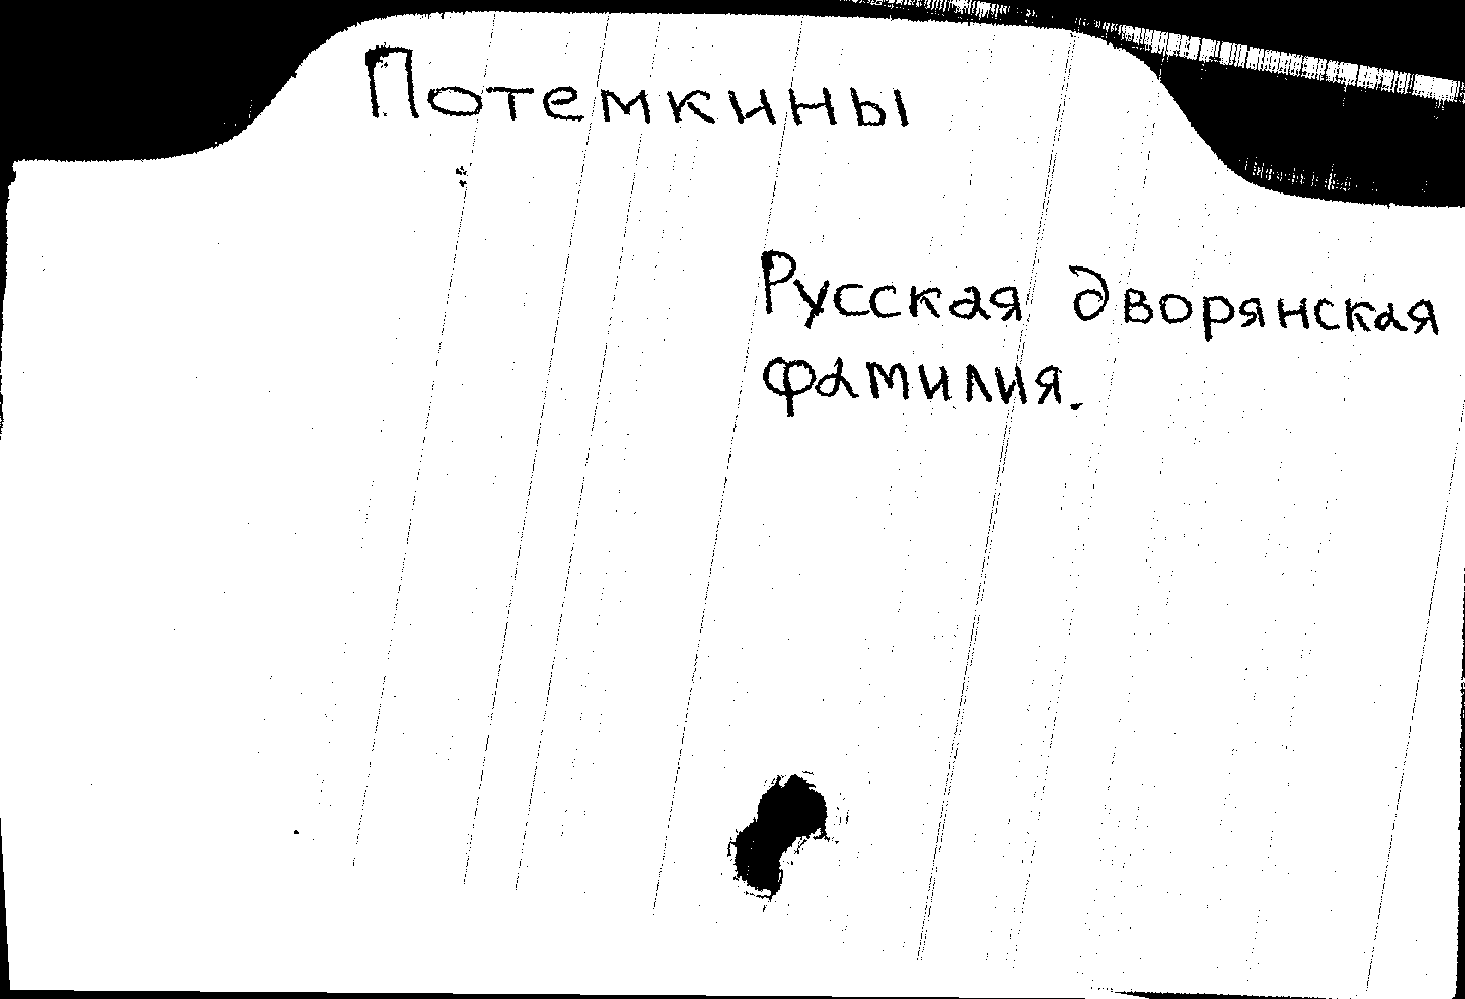 Потемкины
Русская дворянская
фамилия.